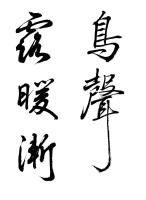 鳥聲
露暖漸